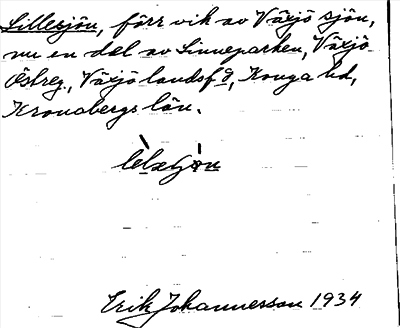 Lillesjön, förr vik av Växjö sjön,
nu en del av Linneparken, Växjö
Östreg., Växjö landsf. d, Konga hd,
Kronobergs län.
Erik Johannesson 1934